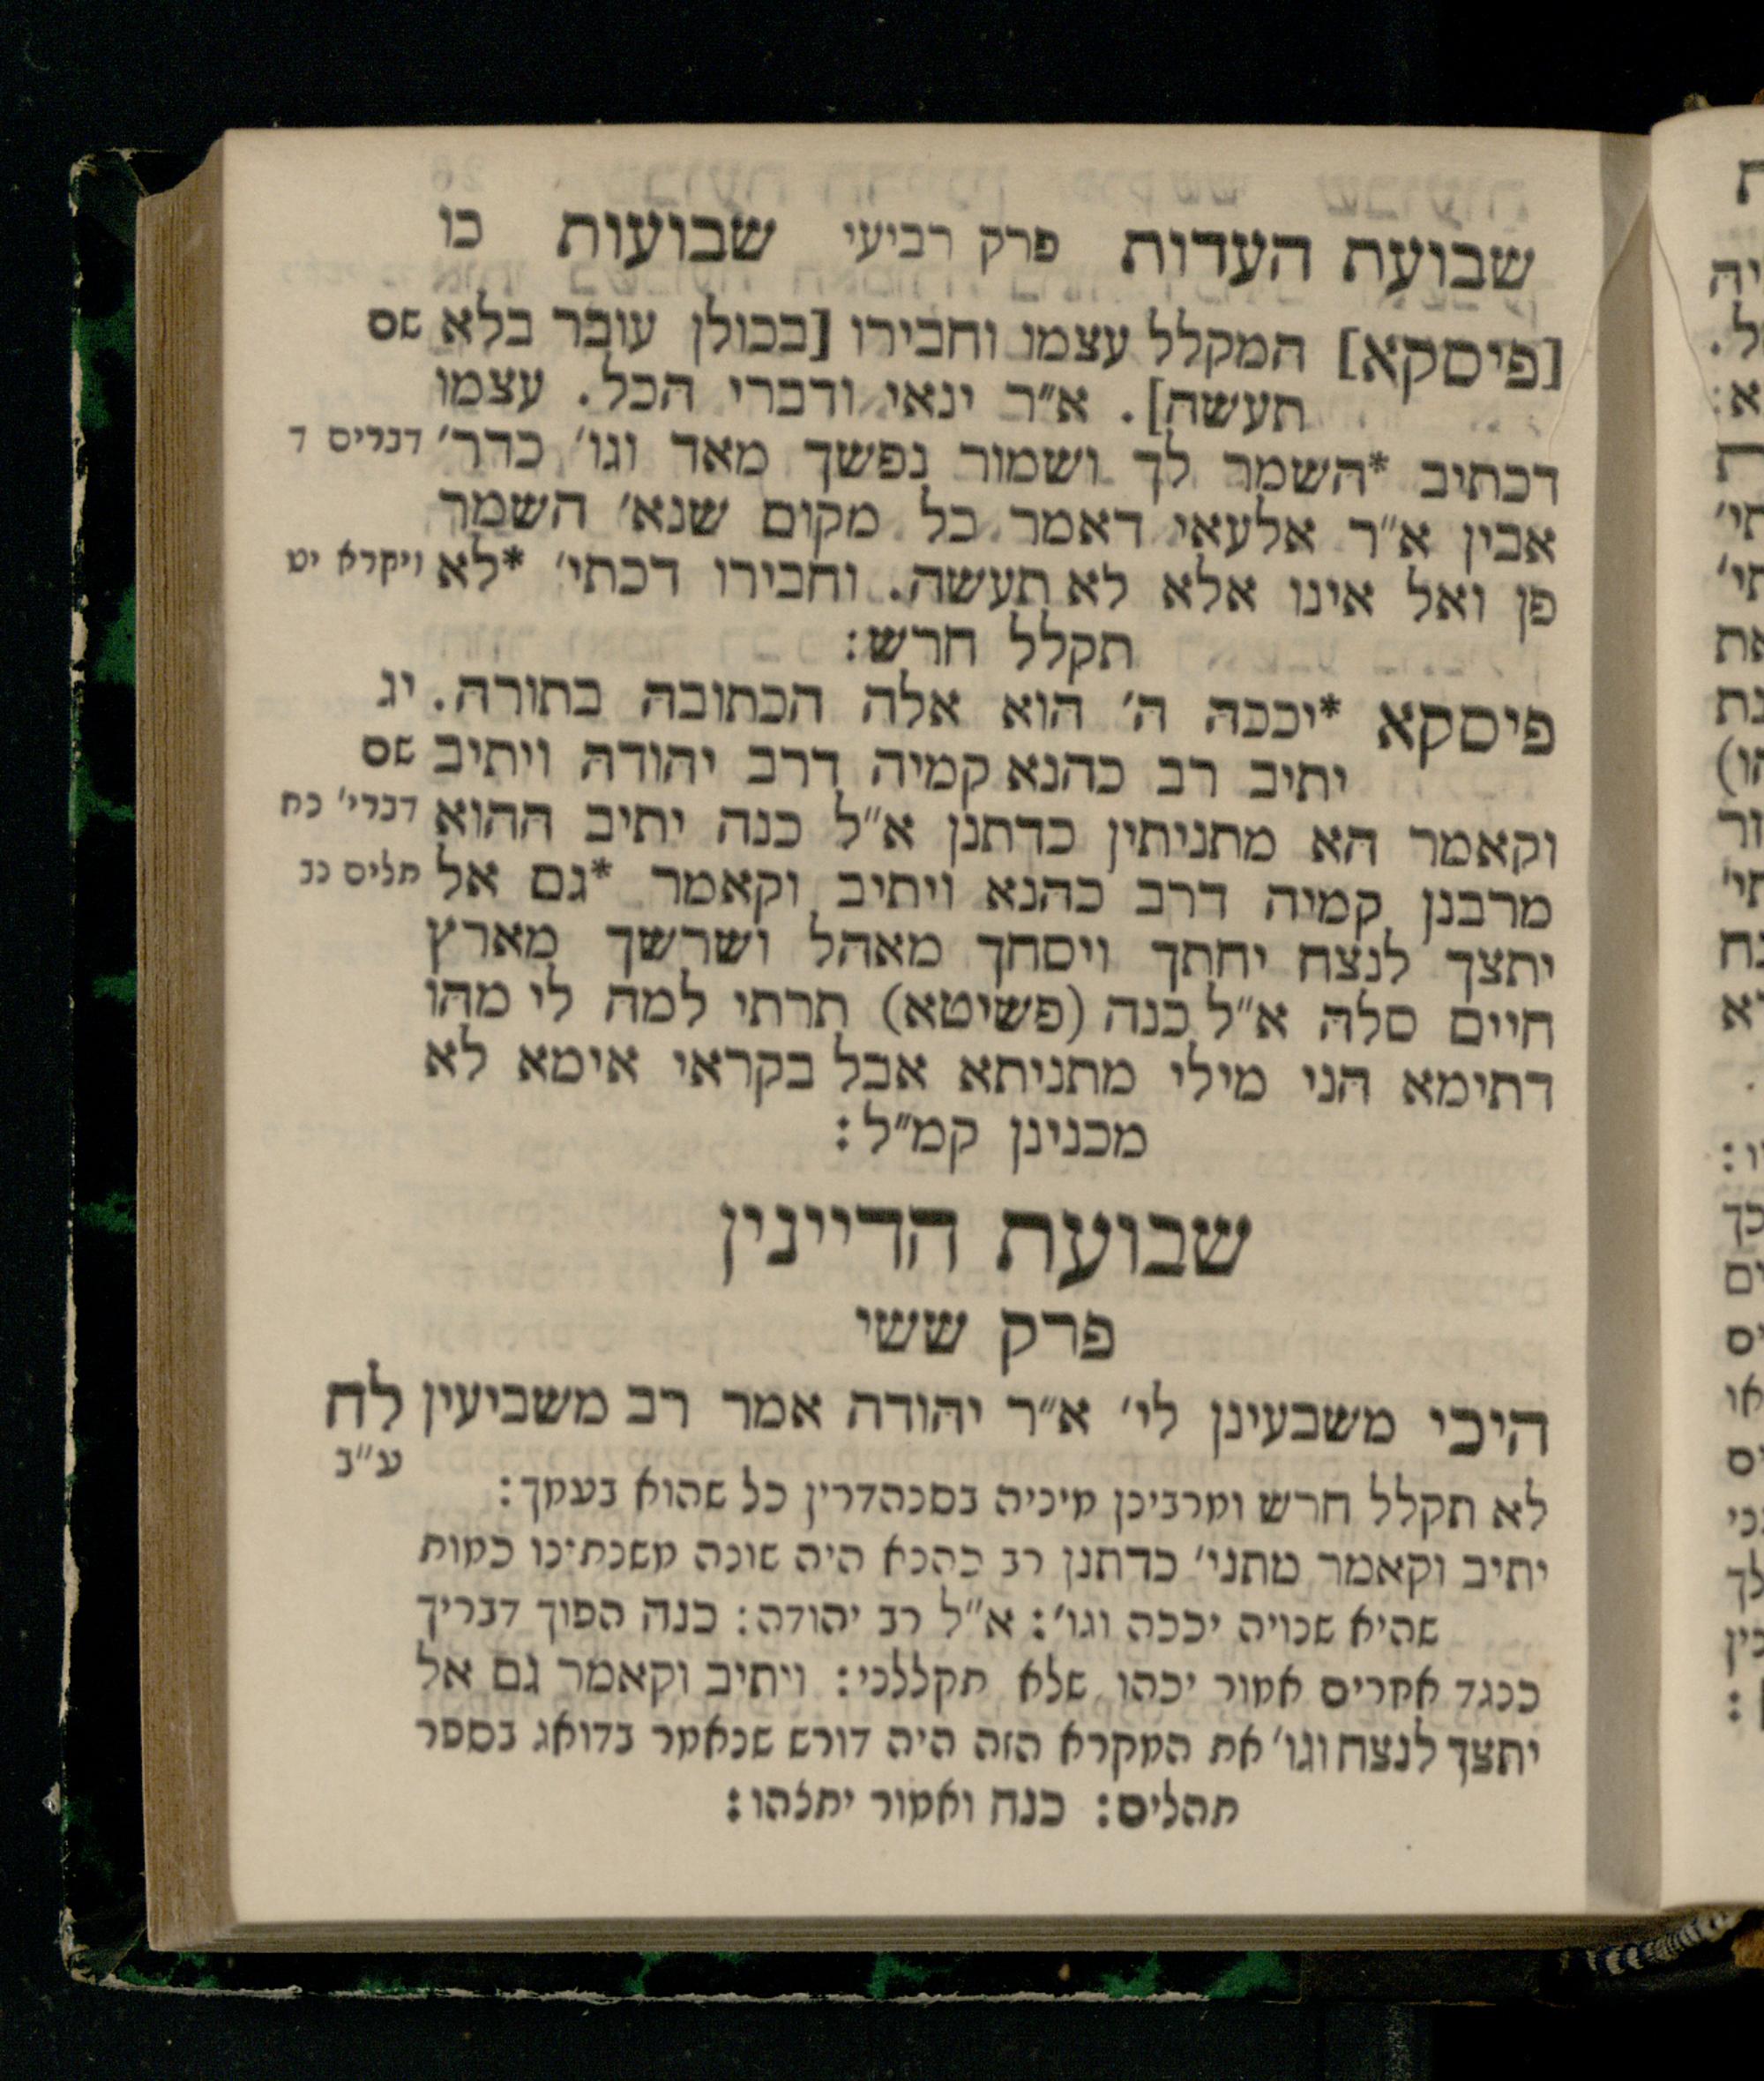 שבועת העדות פרק רביעי שבועות כו
[פיסקא] המקלל עצמו וחבירו [בכולן עובר בלא שם
תעשה]. א״ר ינאי ודברי הכל. עצמו
דכתיב *השמר לך ושמור נפשך מאד וגו׳ כדר׳ דברים ד
אבין א״ר אלעאי דאמר כל מקום שנא׳ השמר
פן ואל אינו אלא לא תעשה. וחבירו דכתי׳ *לא ויקרא יט
תקלל חרש:
פיסקא *יככה ה׳ הוא אלה הכתובה בתורה. יג
יתיב רב כהנא קמיה דרב יהודה ויתיב שם
וקאמר הא מתניתין כדתנן א״ל כנה יתיב ההוא דברי׳ כח
מרבנן קמיה דרב כהנא ויתיב וקאמר *גם אל תלים נב
יתצך לנצח יחתך ויסחך מאהל ושרשך מארץ
חיים סלה א״ל כנה (פשיטא) תרתי למה לי מהו
דתימא הני מילי מתניתא אבל בקראי אימא לא
מכנינן קמ״ל:
שבועת הדיינין
פרק ששי
היכי משבעינן לי׳ א״ר יהודה אמר רב משביעין לח
ע״ב
לא תקלל חרש ומרבינן מיניה בסנהדרין כל שהוא בעמך:
יתיב וקאמר מתני׳ כדתנן רב כהנא היה שונה משנתינו כמות
שהיא שנויה יככה וגו׳: א״ל רב יהודה: כנה הפוך דבריך
כנגד אחרים אמור יכהו שלא תקללני: ויתיב וקאמר גם אל
יתצך לנצח וגו׳ את המקרא הזה היה דורש שנאמר בדואג בספר
תהלים: כנה ואמור יתצהו:
ת
יה
ל.
א:
ת
תי׳
תי׳
את
הו)
תי׳
יא
ו:
כך
ים
יס
או
יס
לך